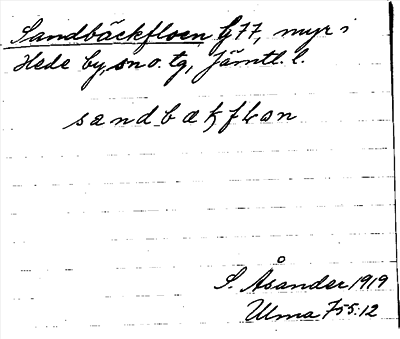 Sandbäckfloen G77, myr i
Hede by, sn o. tg, Jämtl. l.
sandbækfloen
S. Åsander 1919
Ulma 755:12